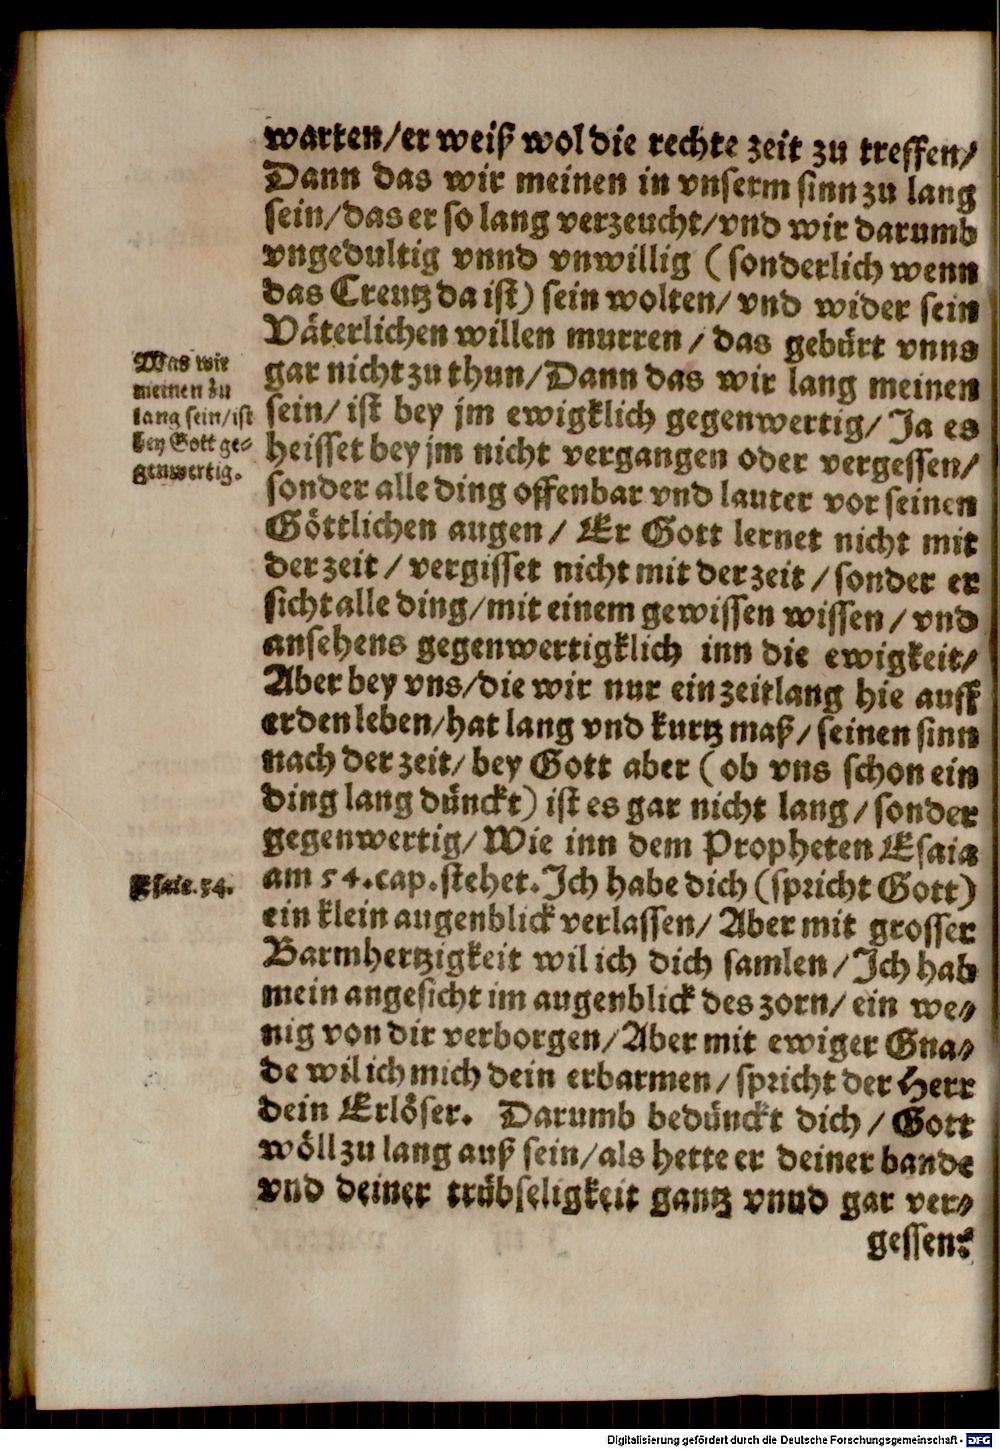 warten/er weiß wol die rechte zeit zu treffen/
Dann das wir meinen in vnserm sinn zu lang
sein/das er so lang verzeucht/vnd wir darumb
vngedultig vnnd vnwillig (sonderlich wenn
das Creutz da ist) sein wolten/vnd wider sein
Väterlichen willen murren/das gebürt vnns
gar nicht zu thun/Dann das wir lang meinen
sein/ist bey jm ewigklich gegenwertig/Ja es
heisset bey jm nicht vergangen oder vergessen/
sonder alle ding offenbar vnd lauter vor seinen
Göttlichen augen/Er Gott lernet nicht mit
der zeit/vergisset nicht mit der zeit/sonder er
sicht alle ding/mit einem gewissen wissen/vnd
ansehens gegenwertigklich inn die ewigkeit/
Aber bey vns/die wir nur ein zeitlang hie auff
erden leben/hat lang vnd kurtz maß/seinen sinn
nach der zeit/bey Gott aber (ob vns schon ein
ding lang dünckt) ist es gar nicht lang/sonder
gegenwertig/Wie inn dem Propheten Esaia
am 54.cap.stehet.Ich habe dich (spricht Gott)
ein klein augenblick verlassen/Aber mit grosser
Barmhertzigkeit wil ich dich samlen/Ich hab
mein angesicht im augenblick des zorn/ein we-
nig von dir verborgen/Aber mit ewiger Gna-
de wil ich mich dein erbarmen/spricht der Herr
dein Erlöser. Darumb bedünckt dich/Gott
wöll zu lang auß sein/als hette er deiner bande
vnd deiner trübseligkeit gantz vnnd gar ver-
gessen?
Was wir
meinen zu
lang sein/ist
bey Gott ge-
genwertig.
Esaie.54.
Digitalisierung gefördert durch die Deutsche Forschungsgemeinschaft - DFG